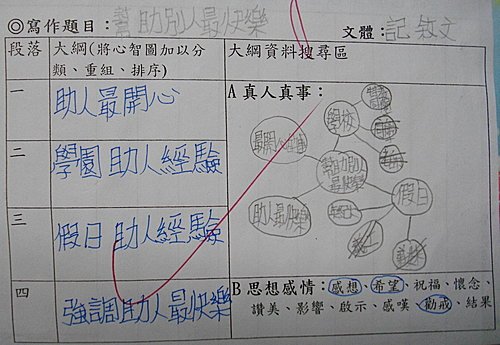 ◎寫作題目：幫助別人最快樂 文體：記敘文
段落 大綱(將心智圖加以分類、重組、排序) 大綱資料搜尋區
一 助人最開心
二 學園助人經驗
三 假日助人經驗
四 強調助人最快樂
A 真人真事：
學校
最開心
幫助別人最快樂
助人最快樂
假日
B 思想感情：感想、希望、祝福、懷念、
讚美、影響、啟示、感嘆、勸戒、結果